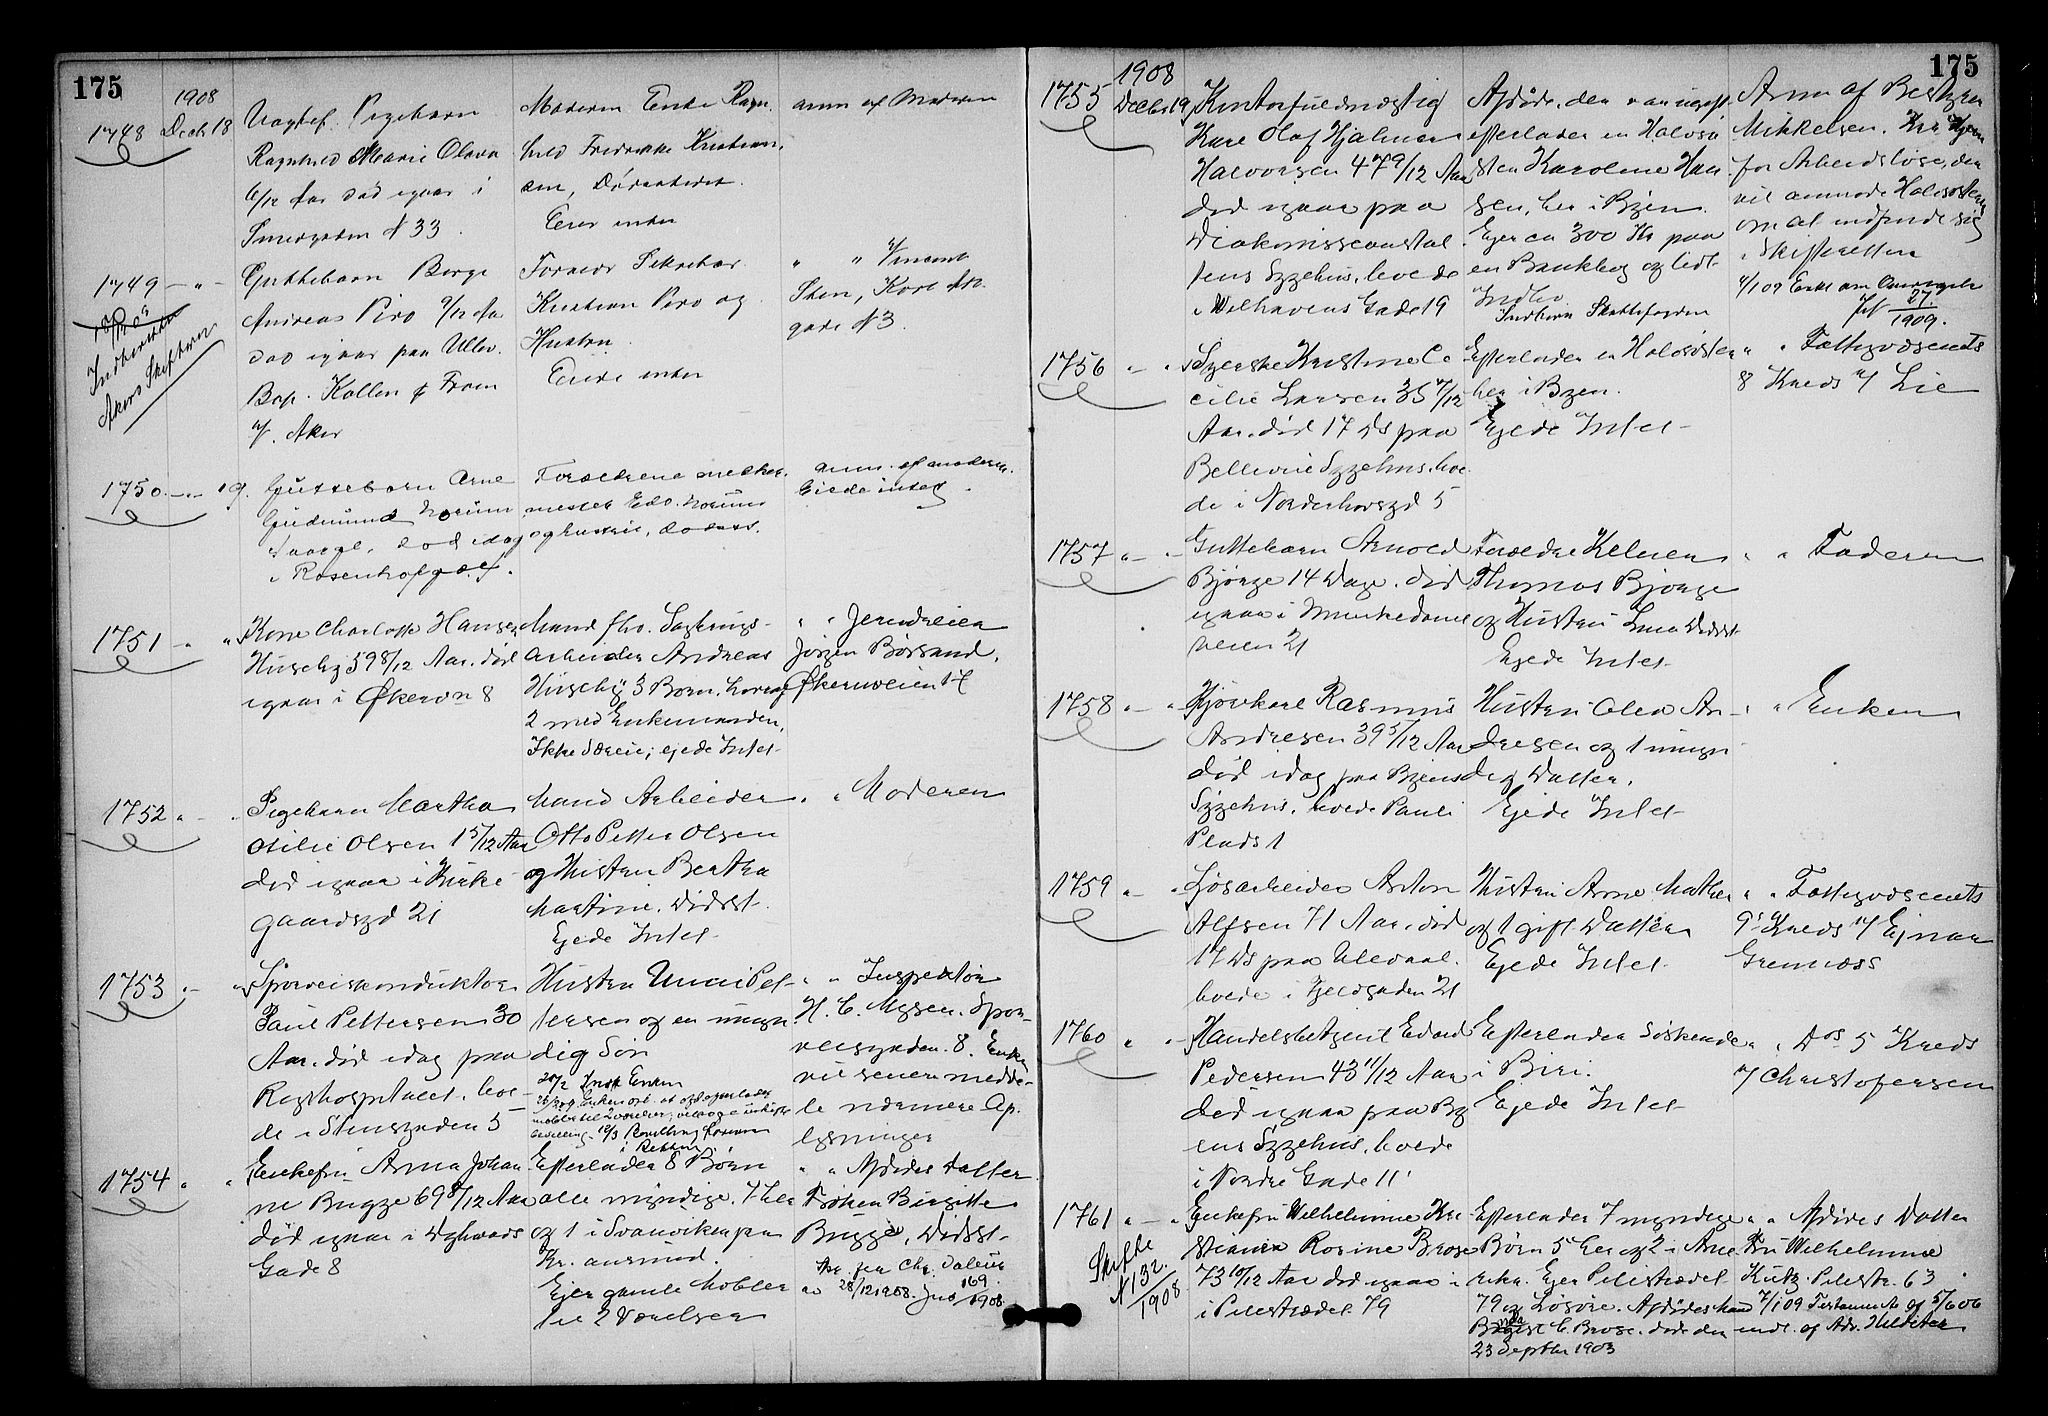 175
1908
1748 Decbr 18
Uægtef. Pigebarn
Ragnhild Marie Olava
6/12 Aar død igaar i
Smedgaden N 33.
Moderen Enke Ragn
hild Fredrikke Kristian
sen, Dödsstedet.
Eier intet
anm af Moderen
1749 - " -
Indberettet
Akers Skifteret
Guttebarn Børge
Andreas Piro 9/12 Aar
død igaar paa Ullev.
Kollen
Aker
Forældr Sekretær
Kristian Piro og
Hustru
Eiede intet
" " v/ Vincent
Sten, Kort Ad.
gade N 3.
1750 - " - 19.
Guttebarn Arne
Gudmund Norum
død idag
i Rosenhofgd 4.
Forældrene
mester Edv. Norum
og hustru, dödsst.
anm. af moderen.
Eiede intet.
1751 - " "
Kone Charlotte Hansen
Huseby 59 8/12 Aar. død
igaar i Økernvn 8
Mand fhv. Sagbrugs-
arbeider Andreas
Huseby 3 Børn, hvoraf
2 med Enkemanden,
Ikke Særeie, ejede Intet
" " Jerndreier
Jörgen Børsand,
Økernveien 14
1752 " - "
Pigebarn Martha
Otilie Olsen 1 5/12 Aar
død igaar i Kirke
gaardsgd 21
Mand Arbeider
Otto Petter Olsen
og Hustru Bertha
Martine. Dødsst.
Ejede Intet
" " Moderen
1753 " - "
Sporveiskonduktør
Paul Pettersen 30
Aar. død idag paa
Rigshospitalet, boe-
de i Stensgaden 5
Hustru Unni Pet-
tersen og en umyn
dig Søn
i Retten
" " Inspektör
H. C. Mysen. Spor-
veisgaden 8. Enken
vil senere medde-
le nærmere Op-
lysninger
1754 " "
Enkefru Anna Johan
ne Bugge 69 8/12 Aar
død igaar i Dybwads
Gade 8
Efterlader 8 Børn
alle myndige. 7 her
og 1 i Svanviken pr
Kr.sund.
Ejer gamle Møbler
til 2 Værelser
" " Afdødes Datter
Frøken Birgitte
Bugge, Dødsst.
28/12 1908. Jno 169/1908.
175
1908
1755 Decbr 19
Kontorfuldmægtig
Karl Olaf Hjalmar
Halvorsen 47 9/12 Aar
død igaar paa
Diakonisseanstal
tens Sygehus, boede
i Welhavens Gade 19
Afdöde, der var ugift
efterlader en Halvsø
ster Karoline Han
sen, her i Byen.
Ejer ca 300 Kr paa
en Bankbog og lidt
Indbo
Indberr Skattefogden
Anm af Bestyrer
Mikkelsen. Kra Hjem
for Arbeidsløse, der
vil anmode Halvsøsteren
om at indfinde sig
i Skifteretten
Jno 27/1909.
1756 - "
Syerske Kristine Ce
cilie Larsen 35 7/12
Aar. død 17 ds paa
Bellevue Sygehus. boe
de i Norderhovsgd 5
Efterlader en Halvsøster
her i Byen.
Ejede Intet
" " Fattigvæsenets
8 Kreds v/ Lie
1757 " - "
Guttebarn Arnold
Bjönge 14 Dage. død
igaar i Munkedams
veien 21
Forældre Kelner
Thomas Bjönge
og Hustru Dødsst
Ejede Intet
" " Faderen
1758 " - "
Kjørekarl Rasmus
Andresen 39 5/12 Aar
død idag paa Byens
Sygehus. boede Pauli
Plads 1
Hustru Olea An-
dresen og 1 umyn
dig Datter.
Ejede Intet
" " Enken
1759 " - "
Løsarbeider Anton
Alfsen 71 Aar. død
17 ds paa Ullevaal.
boede i Fjeldgaden 21
Hustru Anne Mathea
og 1 gift Datter
Ejede Intet
" " Fattigvæsenets
9s Kreds v/ Ejnar
Grennæss
1760 " "
Handelsagent Edvard
Pedersen 43 11/12 Aar
død igaar paa By
ens Sygehus. boede
i Nordre Gade 11
Efterlader Søskende
i Biri.
Ejede Intet
" " Dos 5 Kreds
v/ Christofersen
1761 " - "
Skifte
N 132/1908
Enkefru Wilhelmine Kri
stiane Rosine Brose
73 10/12 Aar død igaar i
i Pilestrædet 79
Efterlader 7 myndige
Børn 5 her og 2 i Ame
rika. Ejer Pilestrædet
79 og Løsøre. Afdødes
C. Brose. døde den
23 Septbr 1903
" " Afdødes Datter
Fru Wilhelmine
Kutz. Pilestr. 63
7/1 09 Testamente af 5/6 06
indl. af Adv.